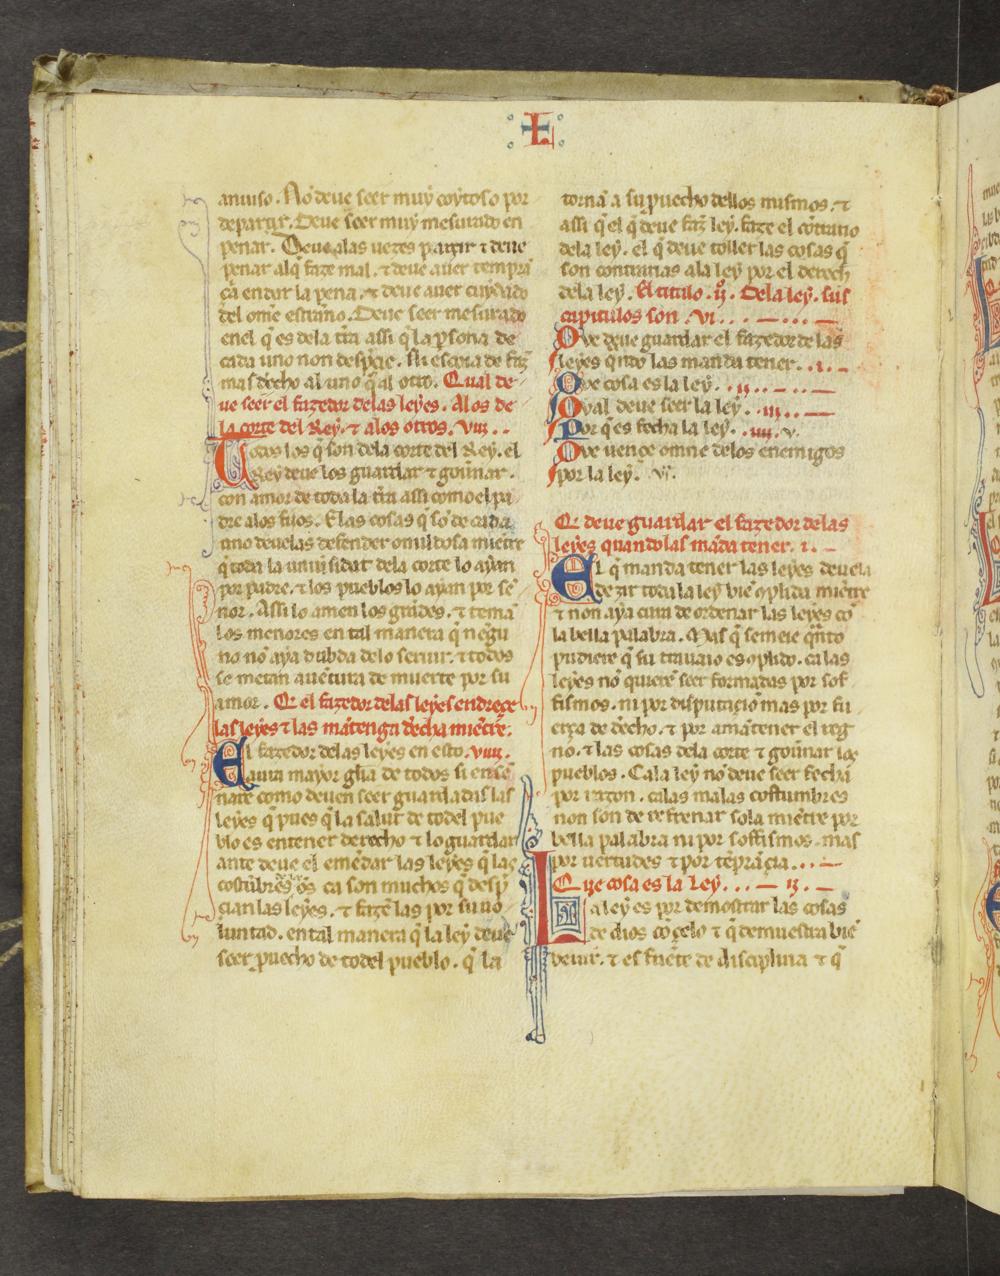 +L
anuiso. No deue seer muy coytoso por
departir. Deue seer muy mesurado en
penar. Deue alas uezes partir ⁊ deue
penar alq̃ faze mal. ⁊ deue auer tempra
ça en dar la pena. ⁊ deue auer cuydado
del om̃e estranno. Deue seer mesurado
enel q̃ es dela tr̃ra assi q̃ la ꝑsona de
cada uno non despꝛecie. ni escoia de faz̃
mas derecho al uno q̃ al otro. Qual de
ue seer el fazedor delas leyes. A los de
la corte del Rey. ⁊ alos otros. viii.
Todos los q̃ son dela corte del Rey. el
Rey deue los guardar ⁊ gouernar.
con amor de toda la tr̃ra assi como el pa
dre alos fijos. E las cosas q̃ so de cada
uno deuelas defender omildosa mientre
q̃ toda la uniuersidat dela corte lo ayan
por padre. ⁊ los pueblos lo ayan por se
nor. Assi lo amen los grãdes. ⁊ tema
los menores en tal manera q̃ negu
no no aya dubda delo seruir. ⁊ todos
se metan auẽtura de muerte por su
amor. Q̃ el fazedor delas leyes endrece
las leyes ⁊ las mãtenga derecha mientre.
El fazedor delas leyes en esto. viiii.
aura mayor gl̃ia de todos si ense
nare como deuen seer guardadas las
leyes q̃ pues q̃ la salut de todel pue
blo es entener derecho ⁊ lo guardar
ante deue el emẽdar las leyes q̃ las
costũbres delos õs ca son muchos q̃ despꝛe
cian las leyes. ⁊ fazẽ las por su uo
luntad. en tal manera q̃ la ley deue
seer ꝓuecho de todel pueblo. q̃ la
torna a su ꝓuecho dellos mismos. ⁊
assi q̃ el q̃ deue faz̃ ley. faze el cõtrario
dela ley. el q̃ deue toller las cosas q̃
son contrarias ala ley por el derecho
dela ley. El titulo .ii. Dela ley. sus
capitulos son .vi.
Que deue guardar el fazedor delas
leyes qndo las manda tener. .i.
Que cosa es la ley. .ii.
Qual deue seer la ley. .iii.
Por q̃ es fecha la ley. .iiii. v.
Que uençe omne delos enemigos
por la ley. vi.
Q̃ deue guardar el fazedor delas
leyes quando las mãda tener. i.
El q̃ manda tener las leyes deuela
dezir toda la ley bie cõplida mientre
⁊ non aya cura de ordenar las leyes co
la bella palabra. Mas q̃ semeie q̃nto
pudiere q̃ su trauaio es cõplido. ca las
leyes no quierẽ seer formadas por sof
fismos. ni por disputaçio mas por fu
erça de derecho. ⁊ por amãtener el reg
no. ⁊ las cosas dela corte ⁊ gouernar los
pueblos. Ca la ley no deue seer fecha
por razon. ca las malas costumbres
non son de refrenar sola mientre por
bella palabra ni por soffismos. mas
por uertudes ⁊ por tẽprãçia.
Que cosa es la Ley. ii.
La ley es por demostrar las cosas
de dios co çelo ⁊ q̃ demuestra bie
beuir. ⁊ es fuente de disciplina ⁊ q̃